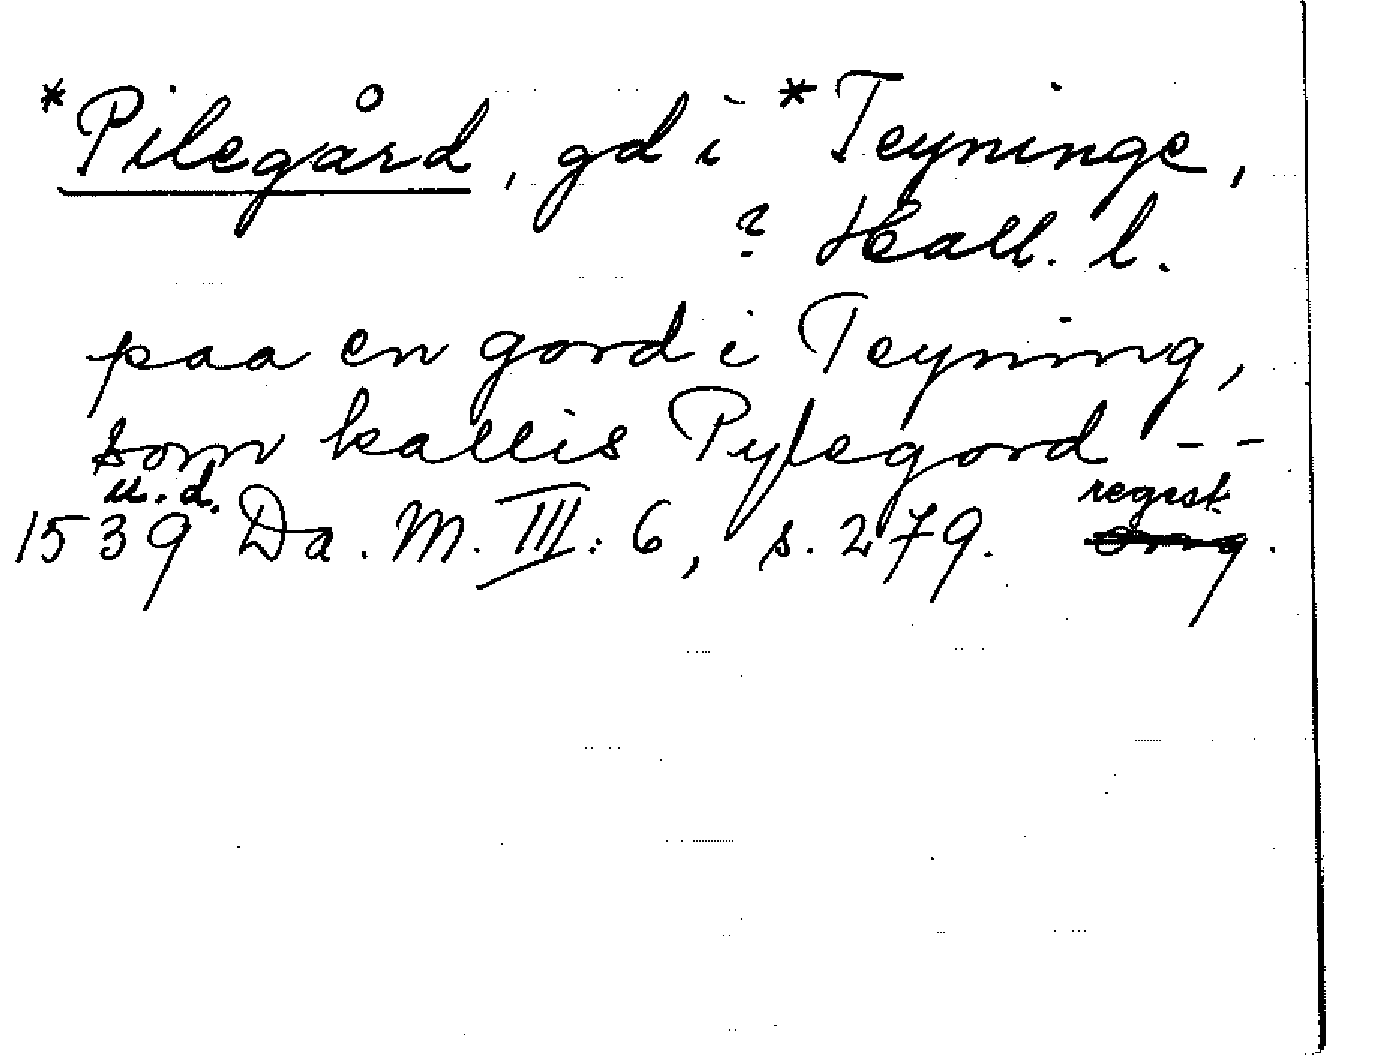 *Pilegård, gd i *Teyninge,
? Hall. l.
paa en gord i Teyning,
som kallis Pylegord --
u.d.
1539 Da. M. III: 6, s. 279. regist.